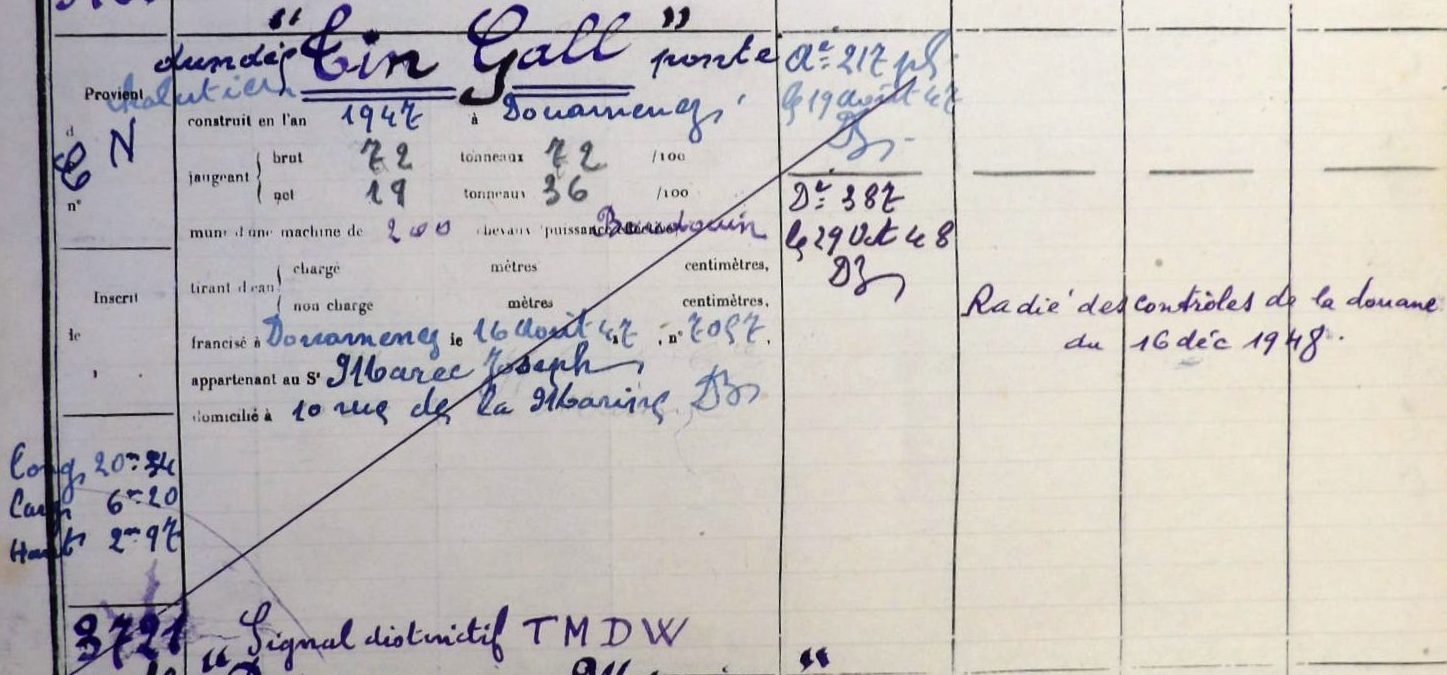 "Tin Gall"
dundée ponté
chalutier
Provient
d
N
n°
construit en l'an 1947 à Douarnenez
jaugeant
brut 72 tonneaux 72 /100
net 19 tonneaux 36 /100
muni d'une machine de 200 chevaux puissance Baudouin
tirant d'eau
chargé mètres centimètres,
non chargé mètres centimètres,
francisé à Douarnenez le 16 août 47, n° 7057,
appartenant au Sr Marec Joseph
domicilié à 10 rue de la Marine
Inscrit
le
Long 20m 34
Larg 6m 20
Haut 2m 97
le 19 août 47
Dce 387
le 29 Oct 48
Radié des contrôles de la douane
du 16 déc 1948.
3721
Signal distinctif TMDW